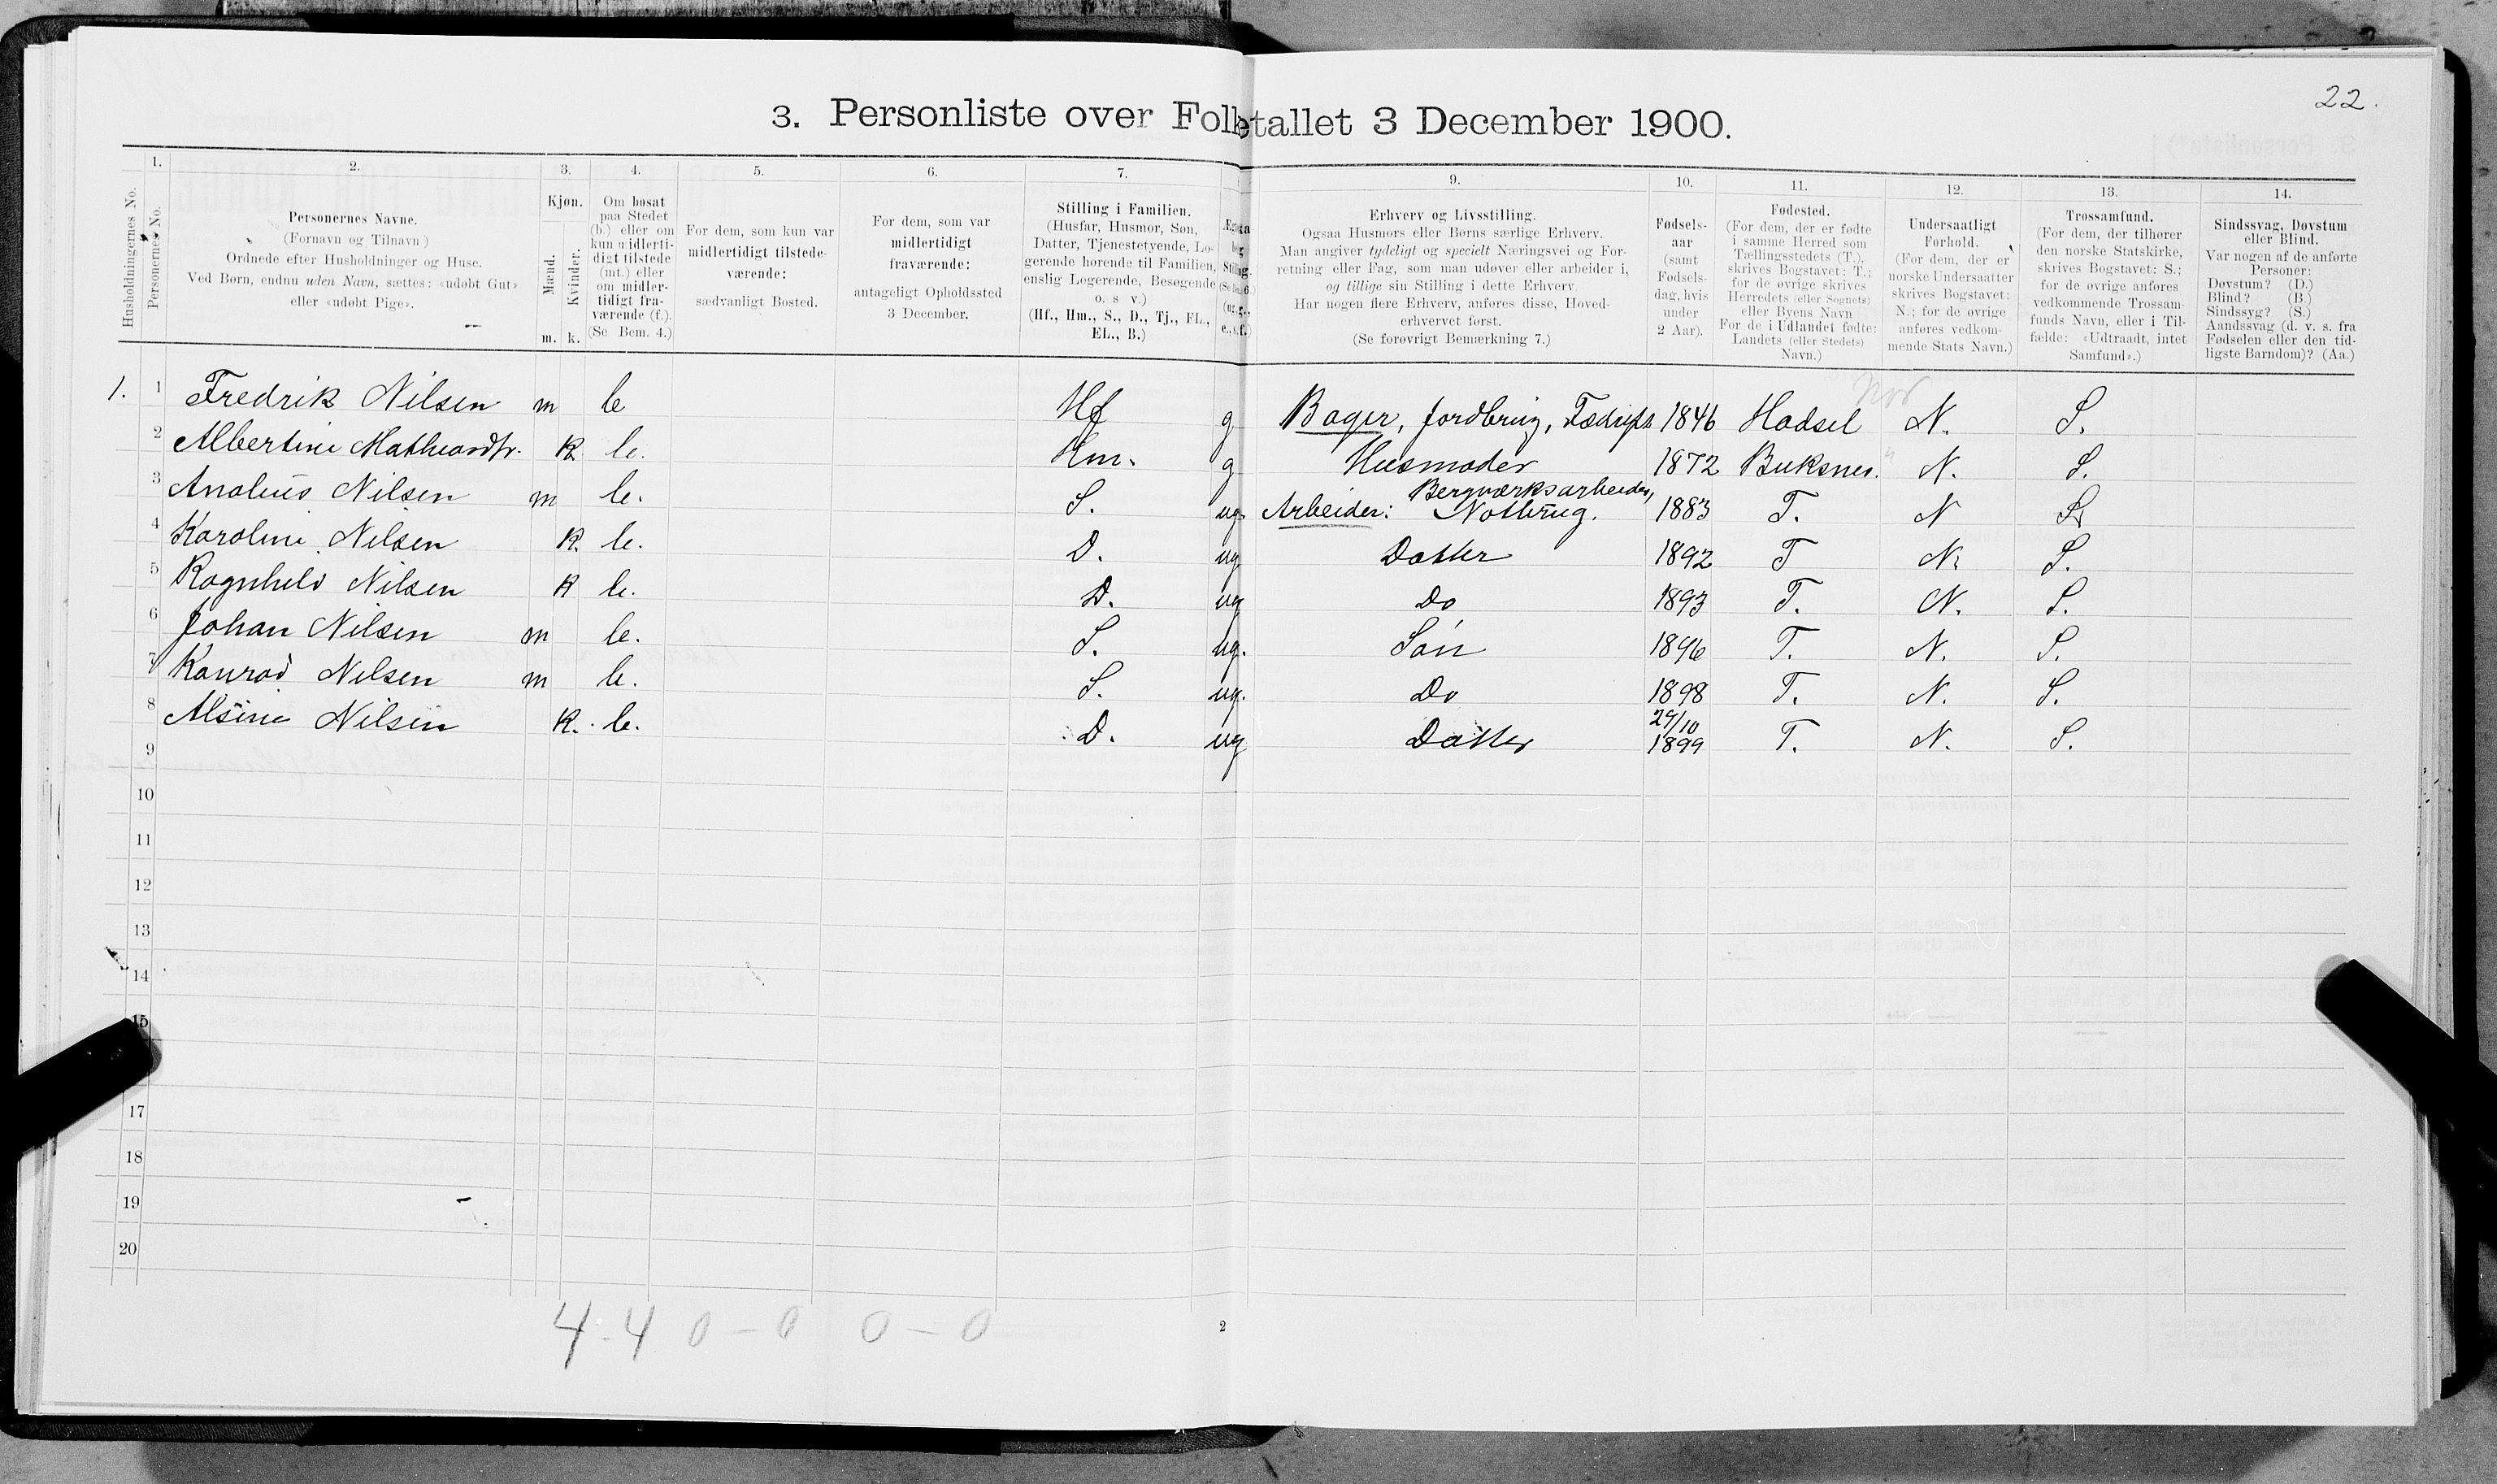 22.
3. Personliste over Folketallet 3 December 1900.
1. 2. 3. 4. 5. 6. 7. 9. 10. 11. 12. 13. 14.
Husholdningernes No.
Personernes No.
Personernes Navne.
(Fornavn og Tilnavn)
Ordnede efter Husholdninger og Huse.
Ved Børn, endnu uden Navn, sættes: «udøbt Gut»
eller «udøbt Pige».
Kjøn.
Mænd.
Kvinder.
m. k.
Om bosat
paa Stedet
(b.) eller om
kun midlerti-
digt tilstede
(mt.) eller
om midler-
tidigt fra-
værende (f.).
(Se Bem. 4.)
For dem, som kun var
midlertidigt tilstede-
værende:
sædvanligt Bosted.
For dem, som var
midlertidigt
fraværende:
antageligt Opholdssted
3 December.
Stilling i Familien.
(Husfar, Husmor, Søn,
Datter, Tjenestetyende, Lo-
gerende hørende til Familien,
enslig Logerende, Besøgende
o. s v.)
(Hf., Hm., S., D., Tj., FL.,
EL., B.)
Erhverv og Livsstilling.
Ogsaa Husmors eller Børns særlige Erhverv.
Man angiver tydeligt og specielt Næringsvei og For-
retning eller Fag, som man udøver eller arbeider i,
og tillige sin Stilling i dette Erhverv
Har nogen flere Erhverv, anføres disse, Hoved-
erhvervet først.
(Se forøvrigt Bemærkning 7.)
Fødsels-
aar
(samt
Fødsels-
dag, hvis
under
2 Aar).
Fødested.
(For dem, der er fødte
i samme Herred som
Tællingsstedets (T.),
skrives Bogstavet: T.;
for de øvrige skrives
Herredets (eller Sognets)
eller Byens Navn
For de i Udlandet fødte:
Landets (eller Stedets)
Navn.)
Undersaatligt
Forhold.
(For dem, der er
norske Undersaatter
skrives Bogstavet:
N.; for de øvrige
anføres vedkom-
mende Stats Navn.)
Trossamfund.
(For dem, der tilhører
den norske Statskirke,
skrives Bogstavet: S.;
for de øvrige anføres
vedkommende Trossam-
funds Navn, eller i Til-
fælde: «Udtraadt, intet
Samfund».)
Sindssvag, Døvstum
eller Blind.
Var nogen af de anførte
Personer:
Døvstum? (D.)
Blind? (B.)
Sindssyg? (S.)
Aandssvag (d. v. s. fra
Fødselen eller den tid-
ligste Barndom)? (Aa.)
1. 1 Fredrik Nilsen m b Hf g Bager, jordbrug, 1846 Hadsel N. S.
2 Albertine k b. Hm. g Husmoder 1872 Buksnes. N. S.
3 Analius Nilsen m b. S. ug. Arbeider: Bergværksarbeider, Notbrug. 1883 T. N S.
4 Karoline Nilsen k. b. D. ug. Datter 1892 T N. S.
5 Ragnhild Nilsen k b. D. ug Do 1893 T. N. S.
6 Johan Nilsen m b. S. ug. Søn 1896 T. N. S.
7 Konrad Nilsen m b. S. ug. Do 1898 T. N. S.
8 Alsine Nilsen k. b. D. ug Datter 29/10 1899 T. N. S.
9
10
11
12
13
14
15
17
18
19
20
4-4 0-0 0-0
2